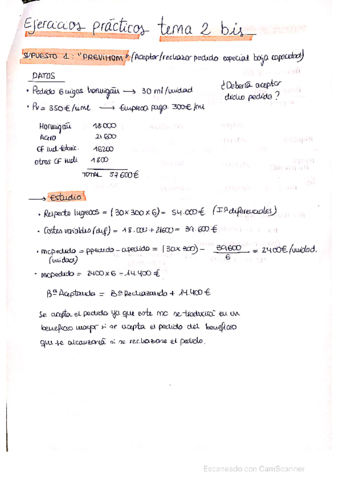 Ejercicios prácticos tema 2 bis
SUPUESTO 1: "PREVIHOM" (Aceptar/rechazar pedido especial baja capacidad)
DATOS
• Pedido 6 vigas hormigón → 30 ml/unidad
¿Debería aceptar
dicho pedido?
• Pv = 350€/ml → Empresa paga 300€/ml
Hormigón 18000
Acero 21600
CF ind. 16200
otros CF ind. 1800
TOTAL 57600€
→ Estudio
• Respecto Ingresos = (30x300x6) = 54.000€ (I diferenciales)
• Costes variables (dif) = 18.000 + 21600 = 39.600€
• mcpedido = ppedido - cvpedido = (30x300) - 39.600/6 = 2400€/unidad.
(unidad)
• mcpedido = 2400x6 = 14.400€
Bº Aceptando = Bº Rechazando + 14.400€
Se acepta el pedido ya que este mc se traducirá en un
beneficio mayor si se acepta el pedido del beneficio
que se alcanzaría si se rechazase el pedido.
Escaneado con CamScanner